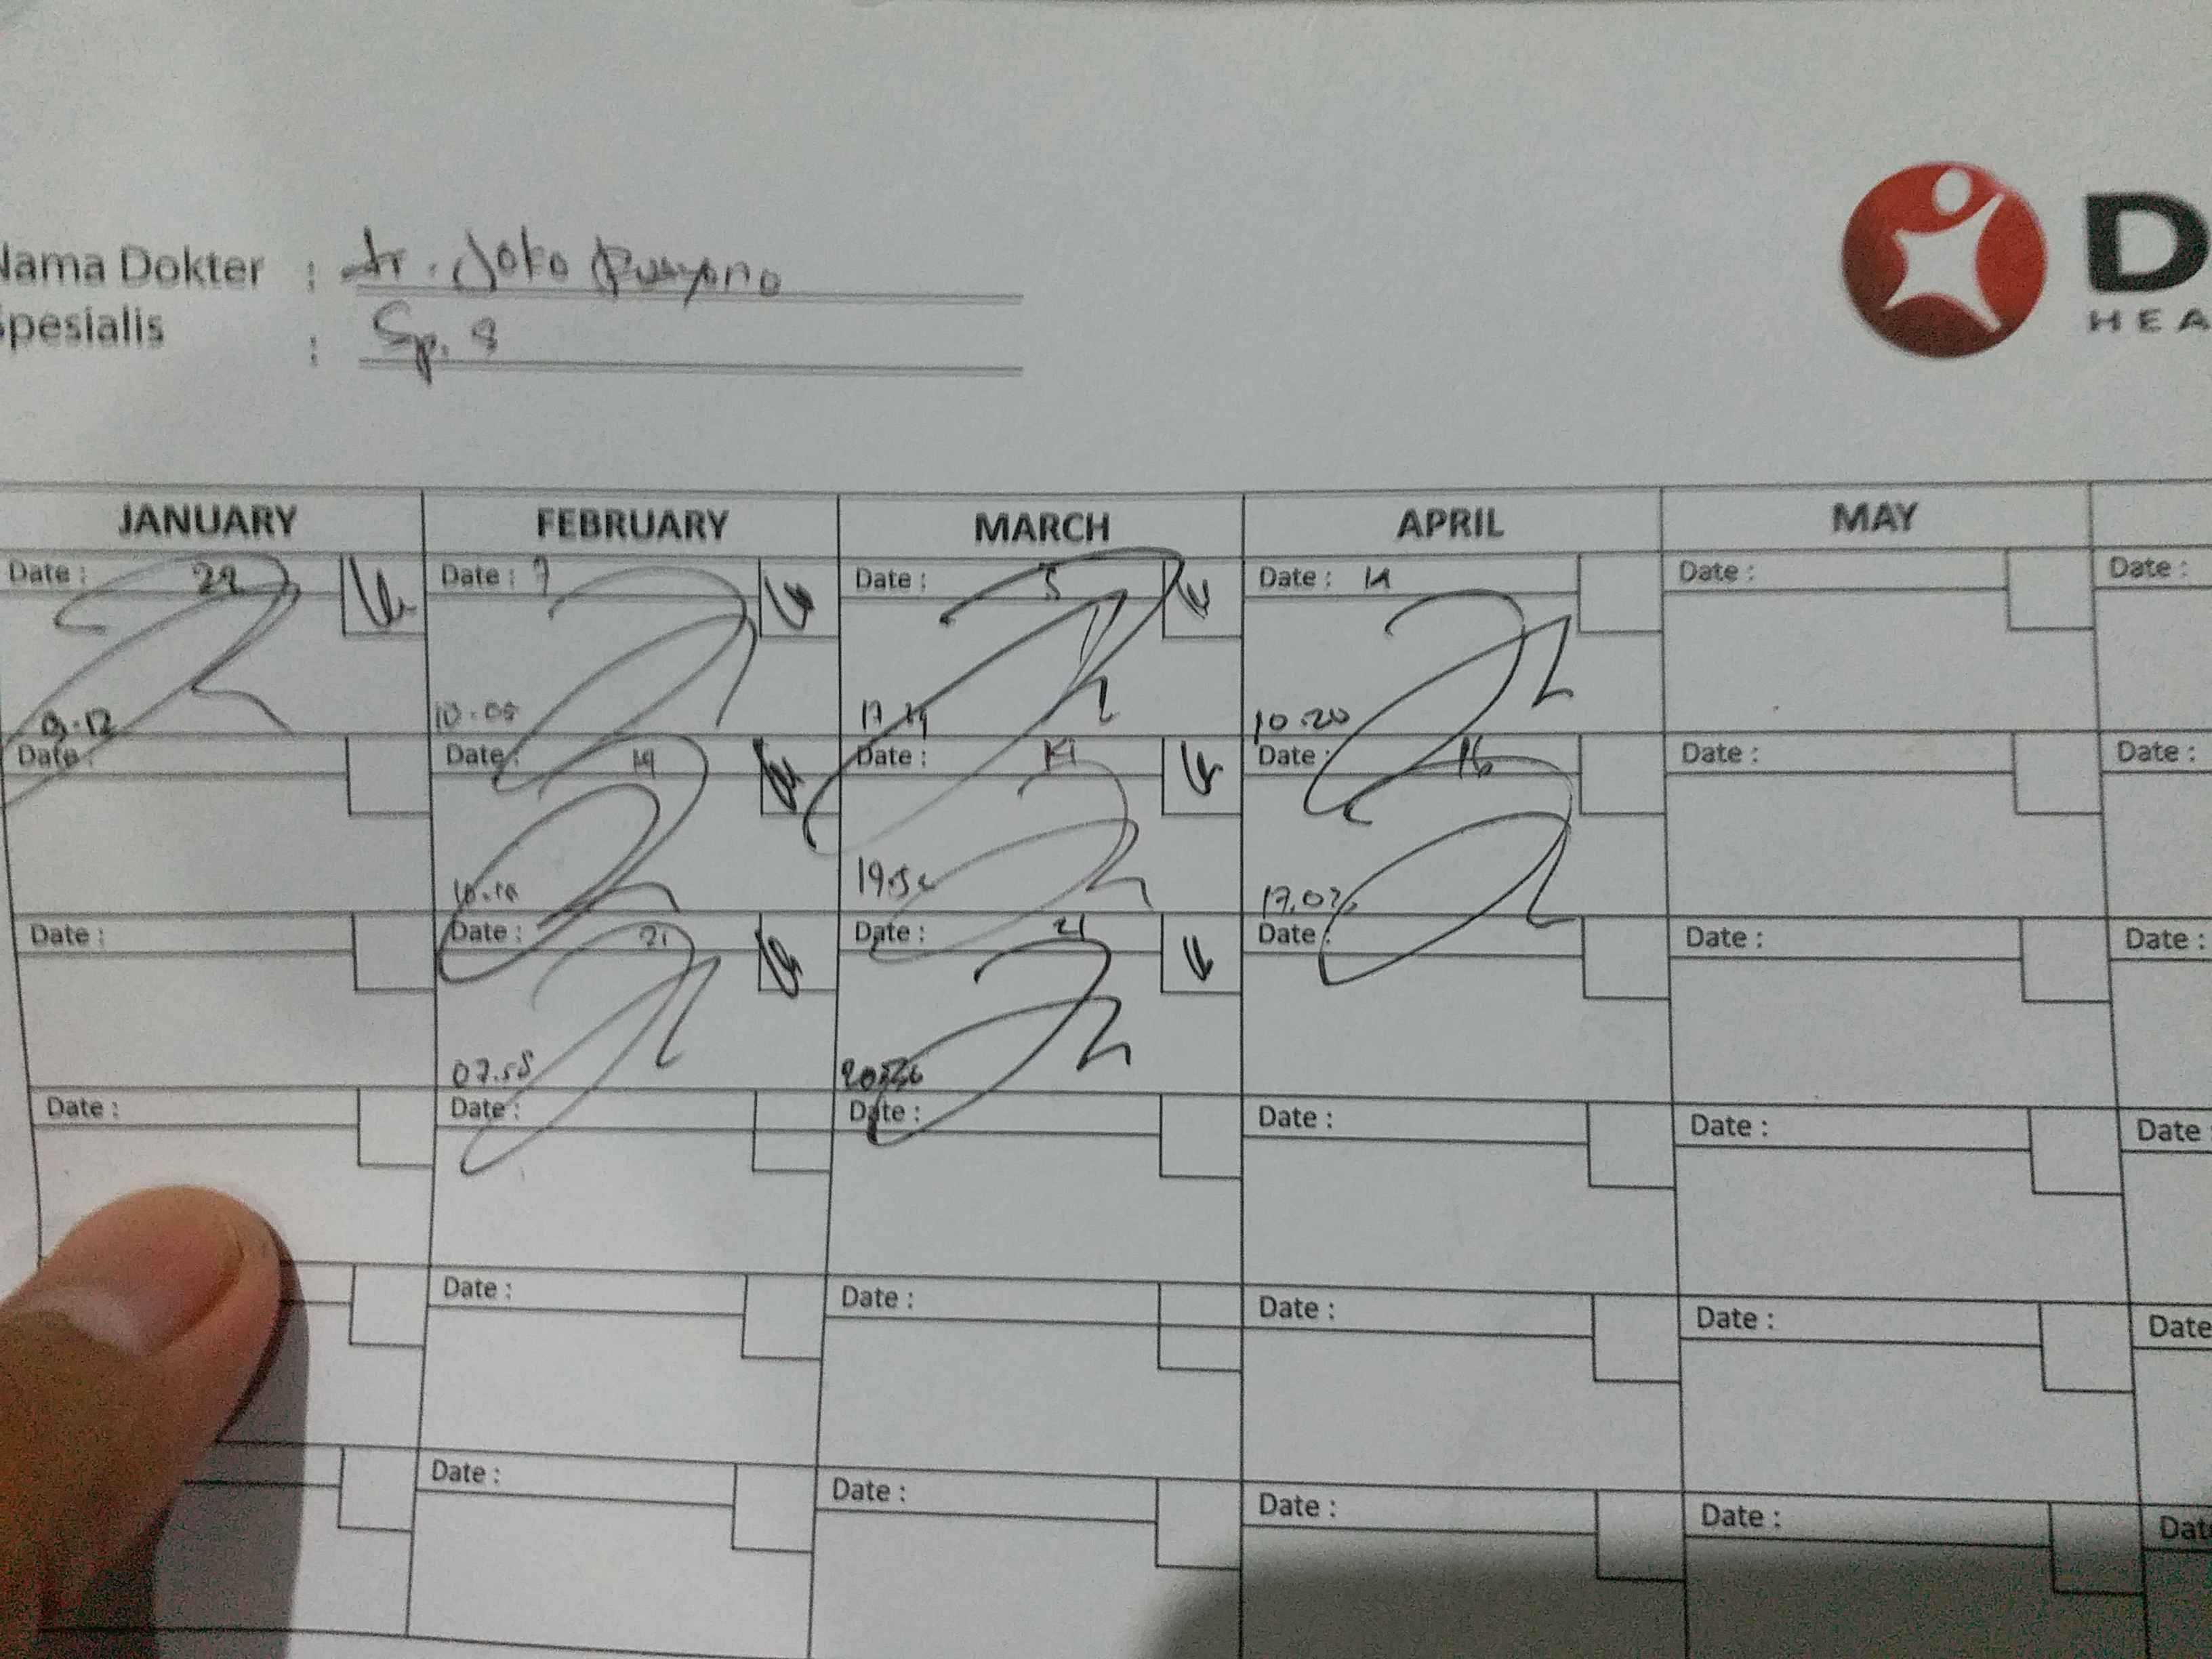 Nama Dokter : dr. Joko
Spesialis : Sp. S
D
HEA
JANUARY FEBRUARY MARCH APRIL MAY
Date : 29 Date : 7 Date : 5 Date : 14 Date : Date :
9.12 10.05 17.14 10.20
Date : Date : 19 Date : 14 Date : 16 Date : Date :
19.5 17.07
Date : Date : 21 Date : 21 Date : Date : Date :
07.55
Date : Date : Date : Date : Date : Date
Date : Date : Date : Date : Date
Date : Date : Date : Date : Dat